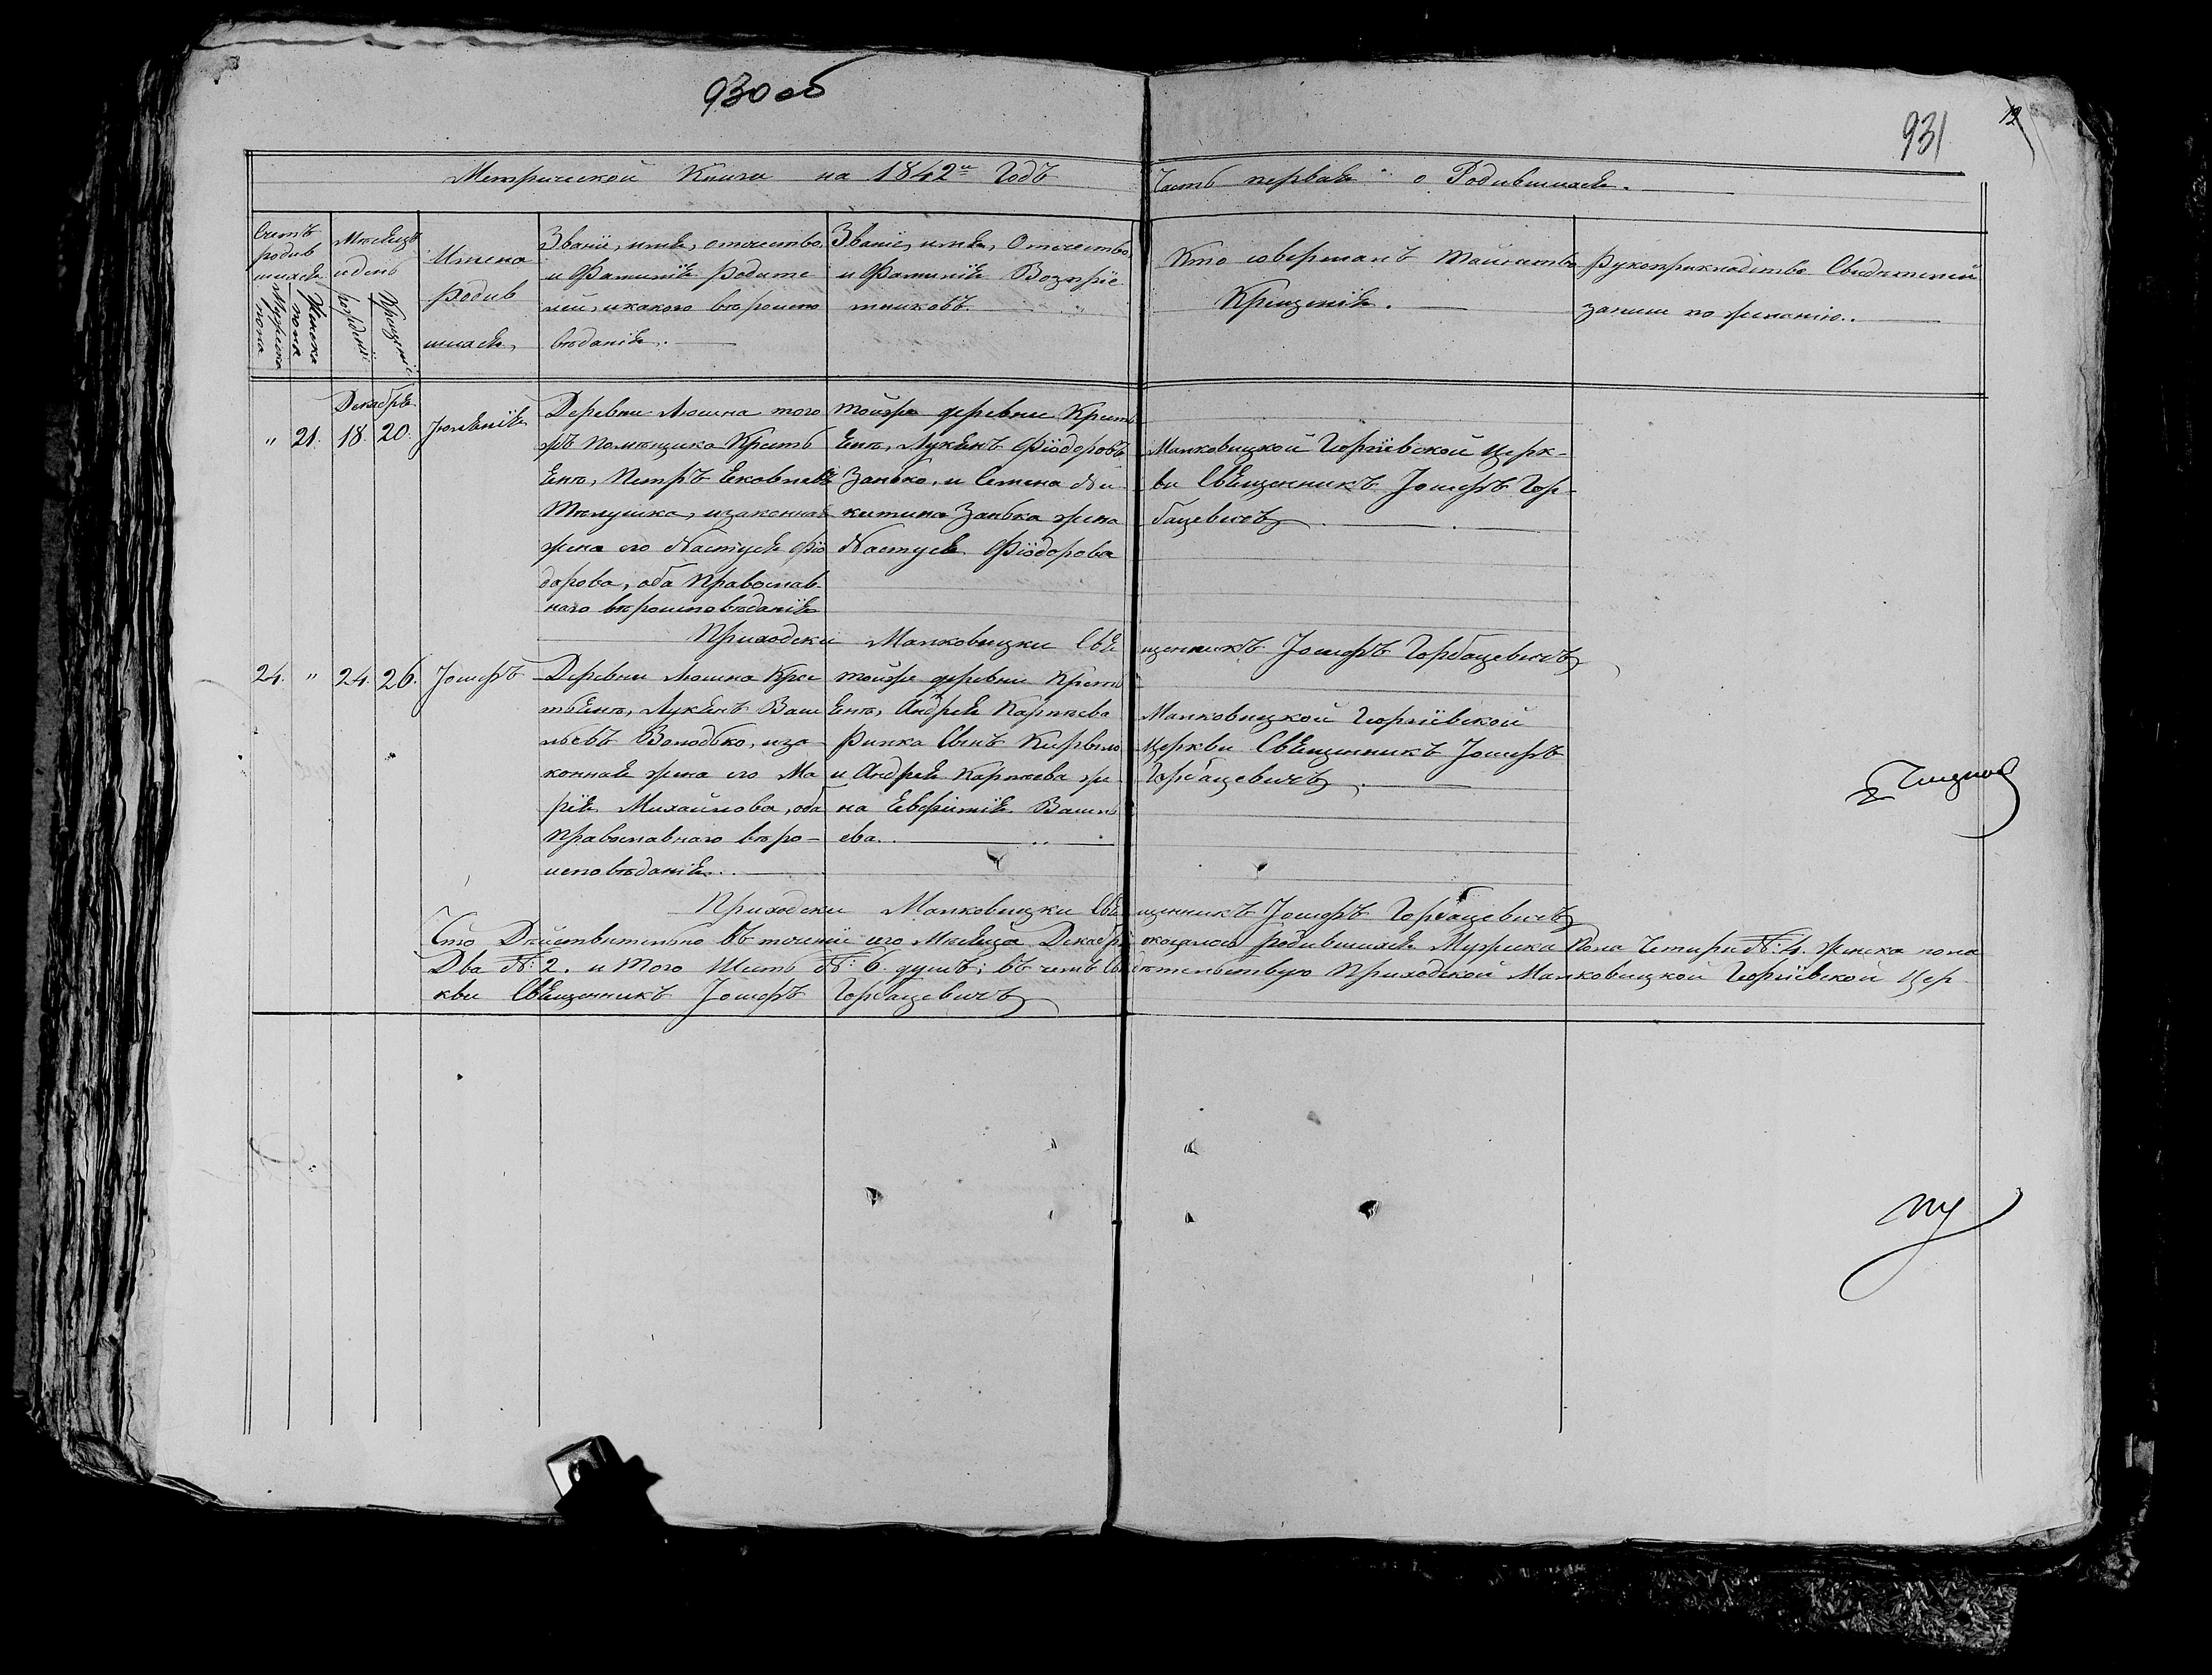 930 об
931
12
Метрической Книги на 1842й Годъ Часть первая о Родившихся.
Счетъ родив шихся
Мужска пола
Женска пола
Месяцъ и день
рождениі
Крещениі
Имена Родив шихся,
Званіе, имя, отчество,
и Фамилія Родите
лей, и какого вероиспо
веданія.
Званіе, имя, Отчество,
и Фамилія Воспріе
мниковъ.
Кто совершалъ Таинство
Крещенія.
Рукоприкладство Свидетелей
записи по желанію.
Декабря
" 21. 18. 20. Іюлянія
Деревни Люшна того
жъ помещика Кресть
янъ, Петръ Яковлевъ
Мелушка, и законная
жена его Настуся Фіо
дорова, оба Православ
наго вероисповеданія
Тойже деревни Кресть
янъ, Лукянъ Фіодоровъ
Занько, и Семена Ни
китина Занька жена
Настуся Фіодорова
Малковицкой Георгіевской Церк-
ви Священникъ Іосифъ Гор-
бацевичъ
Приходски Малковицки Священникъ Іосифъ Горбацевичъ
24. " 24. 26. Іосифъ
Деревни Люшна Крес
тьянъ, Лукянъ Васи
льевъ Володько, и за-
конная жена его Ма
рія Михайлова, оба
Православнаго веро-
исповеданія.
тойже деревни Кресть
янъ, Андрея Карнеева
Рипка Сынъ Кирыло
и Андрея Карнеева же
на Евфимія Василь
ева.
Малковицкой Георгіевской
Церкви Священникъ Іосифъ
Горбацевичъ
Приходски Малковицки Священникъ Іосифъ Горбацевичъ
Что Действительно въ течениі сего Месяца Декабря оказалось родившихся Мужска Пола Четыри №: 4. Женска пола
Два №: 2. и Того Шесть №: 6. душъ; въ чемъ Свидетельствую Приходской Малковицкой Георгіевской Цер
кви Священникъ Іосифъ Горбацевичъ